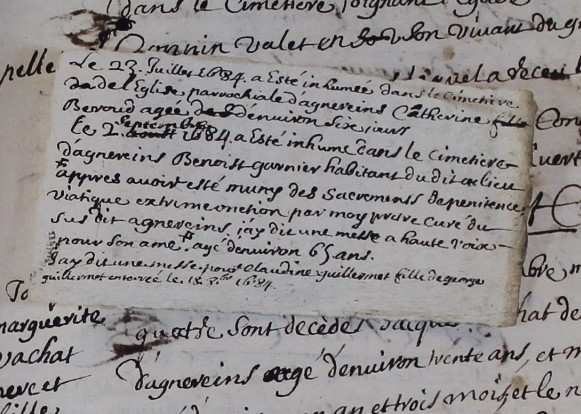 dans le Cimetiere joignant l'Eglise
valet en son vivant du
pelle
Le 23. Juillet 1684. a Esté inhumeé dans le Cimetiere
de l'Eglise parrochiale dagnereins Catherine fille
Beroud ageé denuiron Six jours
Le 2. Septembre 1684. a Esté inhumé dans le Cimetiere
dagnereins Benoist garnier habitant du dit lieu
appres auoir esté muny des Sacrements de penitence
viatique extrime onction par moy curé du
susdit agnereins, j'ay dit une messe a haute voix
pour son ame. agé denuiron 65 ans.
Jay dit une messe pour Claudine guillermet fille de george
guillermot enterreé le 1684.
marguerite
quatre sont décédés
vachat
d'agnereins agé d'enuiron trente ans, et
et
an et trois mois, et le